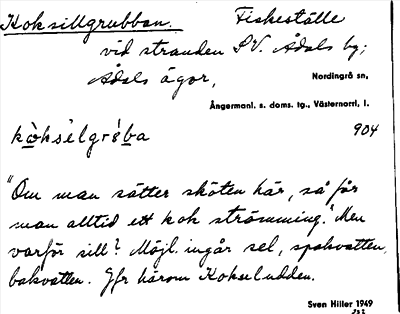 Koksillgrubban. Fiskeställe
vid stranden SV. Ådals by;
Ådals ägor,
Nordingrå sn,
Ångermanl. s. doms. tg., Västernorrl. l.
904
"Om man sätter sköten här, så får
man alltid ett kok strömming." Men
varför sill? Möjl. ingår sel, spakvatten,
bakvatten. Jfr härom Kokseludden.
Sven Hiller 1949